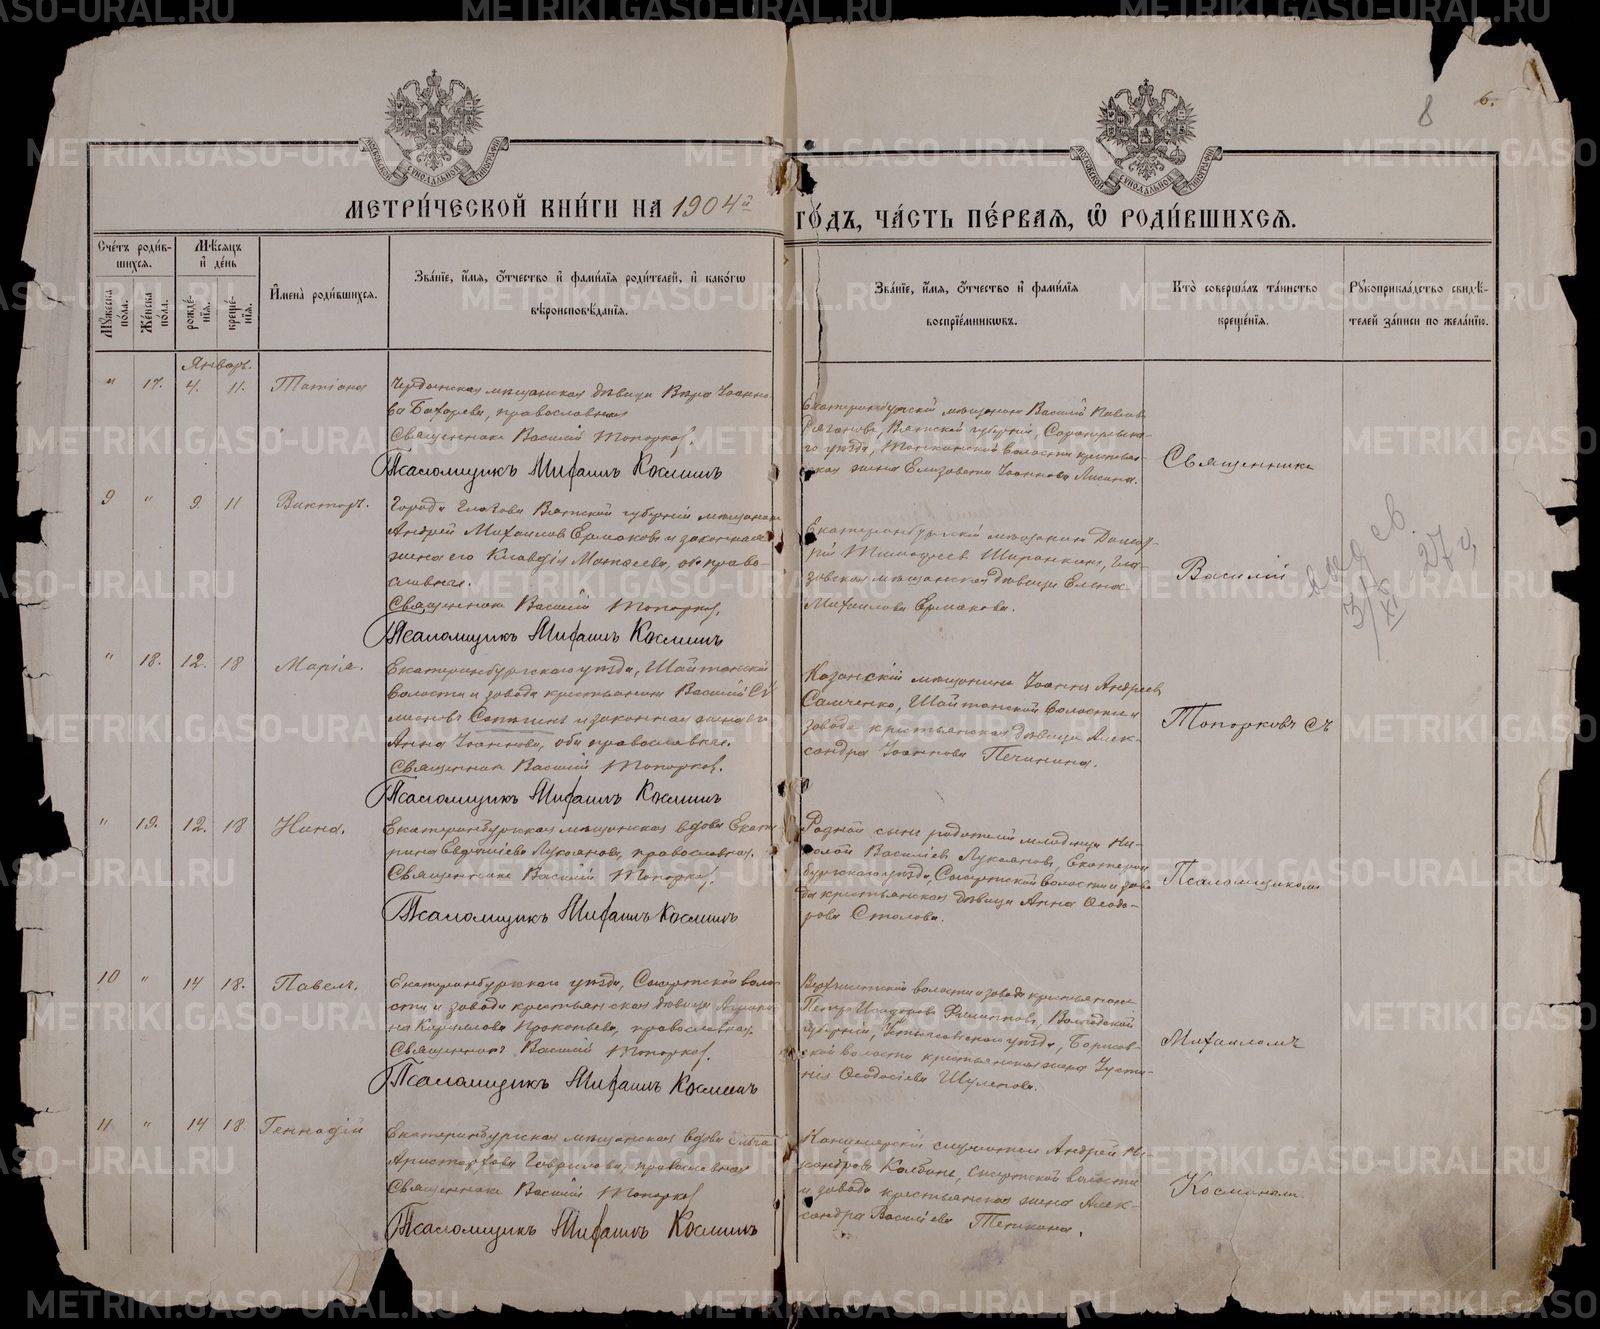 METRIKI.GASO-URAL.RU
8
6.
МОСКОВСКОЙ СѴНОДАЛЬНОЙ ТИПОГРАФІИ
МОСКОВСКОЙ СѴНОДАЛЬНОЙ ТИПОГРАФІИ
МЕТРИ́ЧЕСКОЙ КНИ́ГИ НА 1904й ГО́ДЪ, ЧА́СТЬ ПЕ́РВАѦ, Ѡ РОДИ́ВШИХСѦ.
Сче́тъ роди́в-
шихсѧ.
Мꙋ́жеска по́ла.
Же́нска по́ла.
Мѣ́сѧцъ
и҆ де́нь
рожде́-
нїѧ.
креще́-
нїѧ.
И҆мена̀ роди́вшихсѧ.
Зва́нїе, и҆́мѧ, ѻ҆́тчество и҆ фами́лїѧ роди́телей, и҆ како́гѡ
вѣроисповѣ́данїѧ.
Зва́нїе, и҆́мѧ, ѻ҆́тчество и҆ фами́лїѧ
воспрїе́мникѡвъ.
Кто̀ соверша́лъ та́инство
креще́нїѧ.
Рꙋкоприкла́дство свидѣ́-
телей за́писи по жела́нїю.
Январь.
" 17. 4. 11. Татіана
Чердынская мѣщанская дѣвица Вѣра Іоанно-
ва Бахарева, православная
Священникъ Василій Топорковъ.
Псаломщикъ Михаилъ Космынъ
Екатеринбургскій мѣщанинъ Василій Павловъ
Вятской губерніи, Сарапульска-
го уѣзда, волости крестьян-
ская жена Елизавета Іоаннова Лисина.
Священникъ
9 " 9 11 Викторъ.
Города Глазова Вятской губерніи мѣщанинъ
Андрей Михаиловъ Ермаковъ и законная
жена его Клавдія Матѳеева, оба право-
славные.
Священникъ Василій Топорковъ.
Псаломщикъ Михаилъ Космынъ
Екатеринбургскій мѣщанинъ
Тимоѳеевъ Ширинкинъ, Гла-
зовская мѣщанская дѣвица Елена
Михаилова Ермакова.
Василій
выд св.
3/XI 27 г.
" 18. 12. 18 Марія.
Екатеринбургскаго уѣзда, Шайтанской
волости и завода крестьянинъ Василій Си-
меоновъ и законная жена его
Анна Іоаннова, оба православные.
Священникъ Василій Топорковъ.
Псаломщикъ Михаилъ Космынъ
Казанскій мѣщанинъ Іоаннъ Андреевъ
Савченко, Шайтанской волости и
завода крестьянская дѣвица Алек-
сандра Іоаннова Печинина.
Топорковъ съ
" 19. 12. 18 Нина.
Екатеринбургская мѣщанская вдова Екате-
рина Евдокіева Лукоянова, православная.
Священникъ Василій Топорковъ.
Псаломщикъ Михаилъ Космынъ
Родной сынъ родителей младенца Ни-
колай Василіевъ Лукояновъ, Екатерин-
бургскаго уѣзда, Сысертской волости и заво-
да крестьянская дѣвица Анна Ѳеодо-
рова Столова.
Псаломщикомъ
10 " 14 18. Павелъ.
Екатеринбургскаго уѣзда, Сысертской воло-
сти и завода крестьянская дѣвица
Кириллова Прокопьева, православная.
Священникъ Василій Топорковъ.
Псаломщикъ Михаилъ Космынъ
Верхисетской волости и завода крестьянинъ
Петръ Исидоровъ Филипповъ, Вологодской
губерніи, Устьсысольскаго уѣзда, Борисов-
ской волости крестьянская жена Іусти-
нія Ѳеодосіева Шулепова.
Михаиломъ
11 " 14 18 Геннадій
Екатеринбургская мѣщанская вдова Ольга
Аристархова Гаврилова, православная
Священникъ Василій Топорковъ
Псаломщикъ Михаилъ Космынъ
Канцелярскій служитель Андрей Ни-
кандровъ Колбинъ, Сысертской волости
и завода крестьянская жена Алек-
сандра Василіева Тетюкина.
Космынымъ.